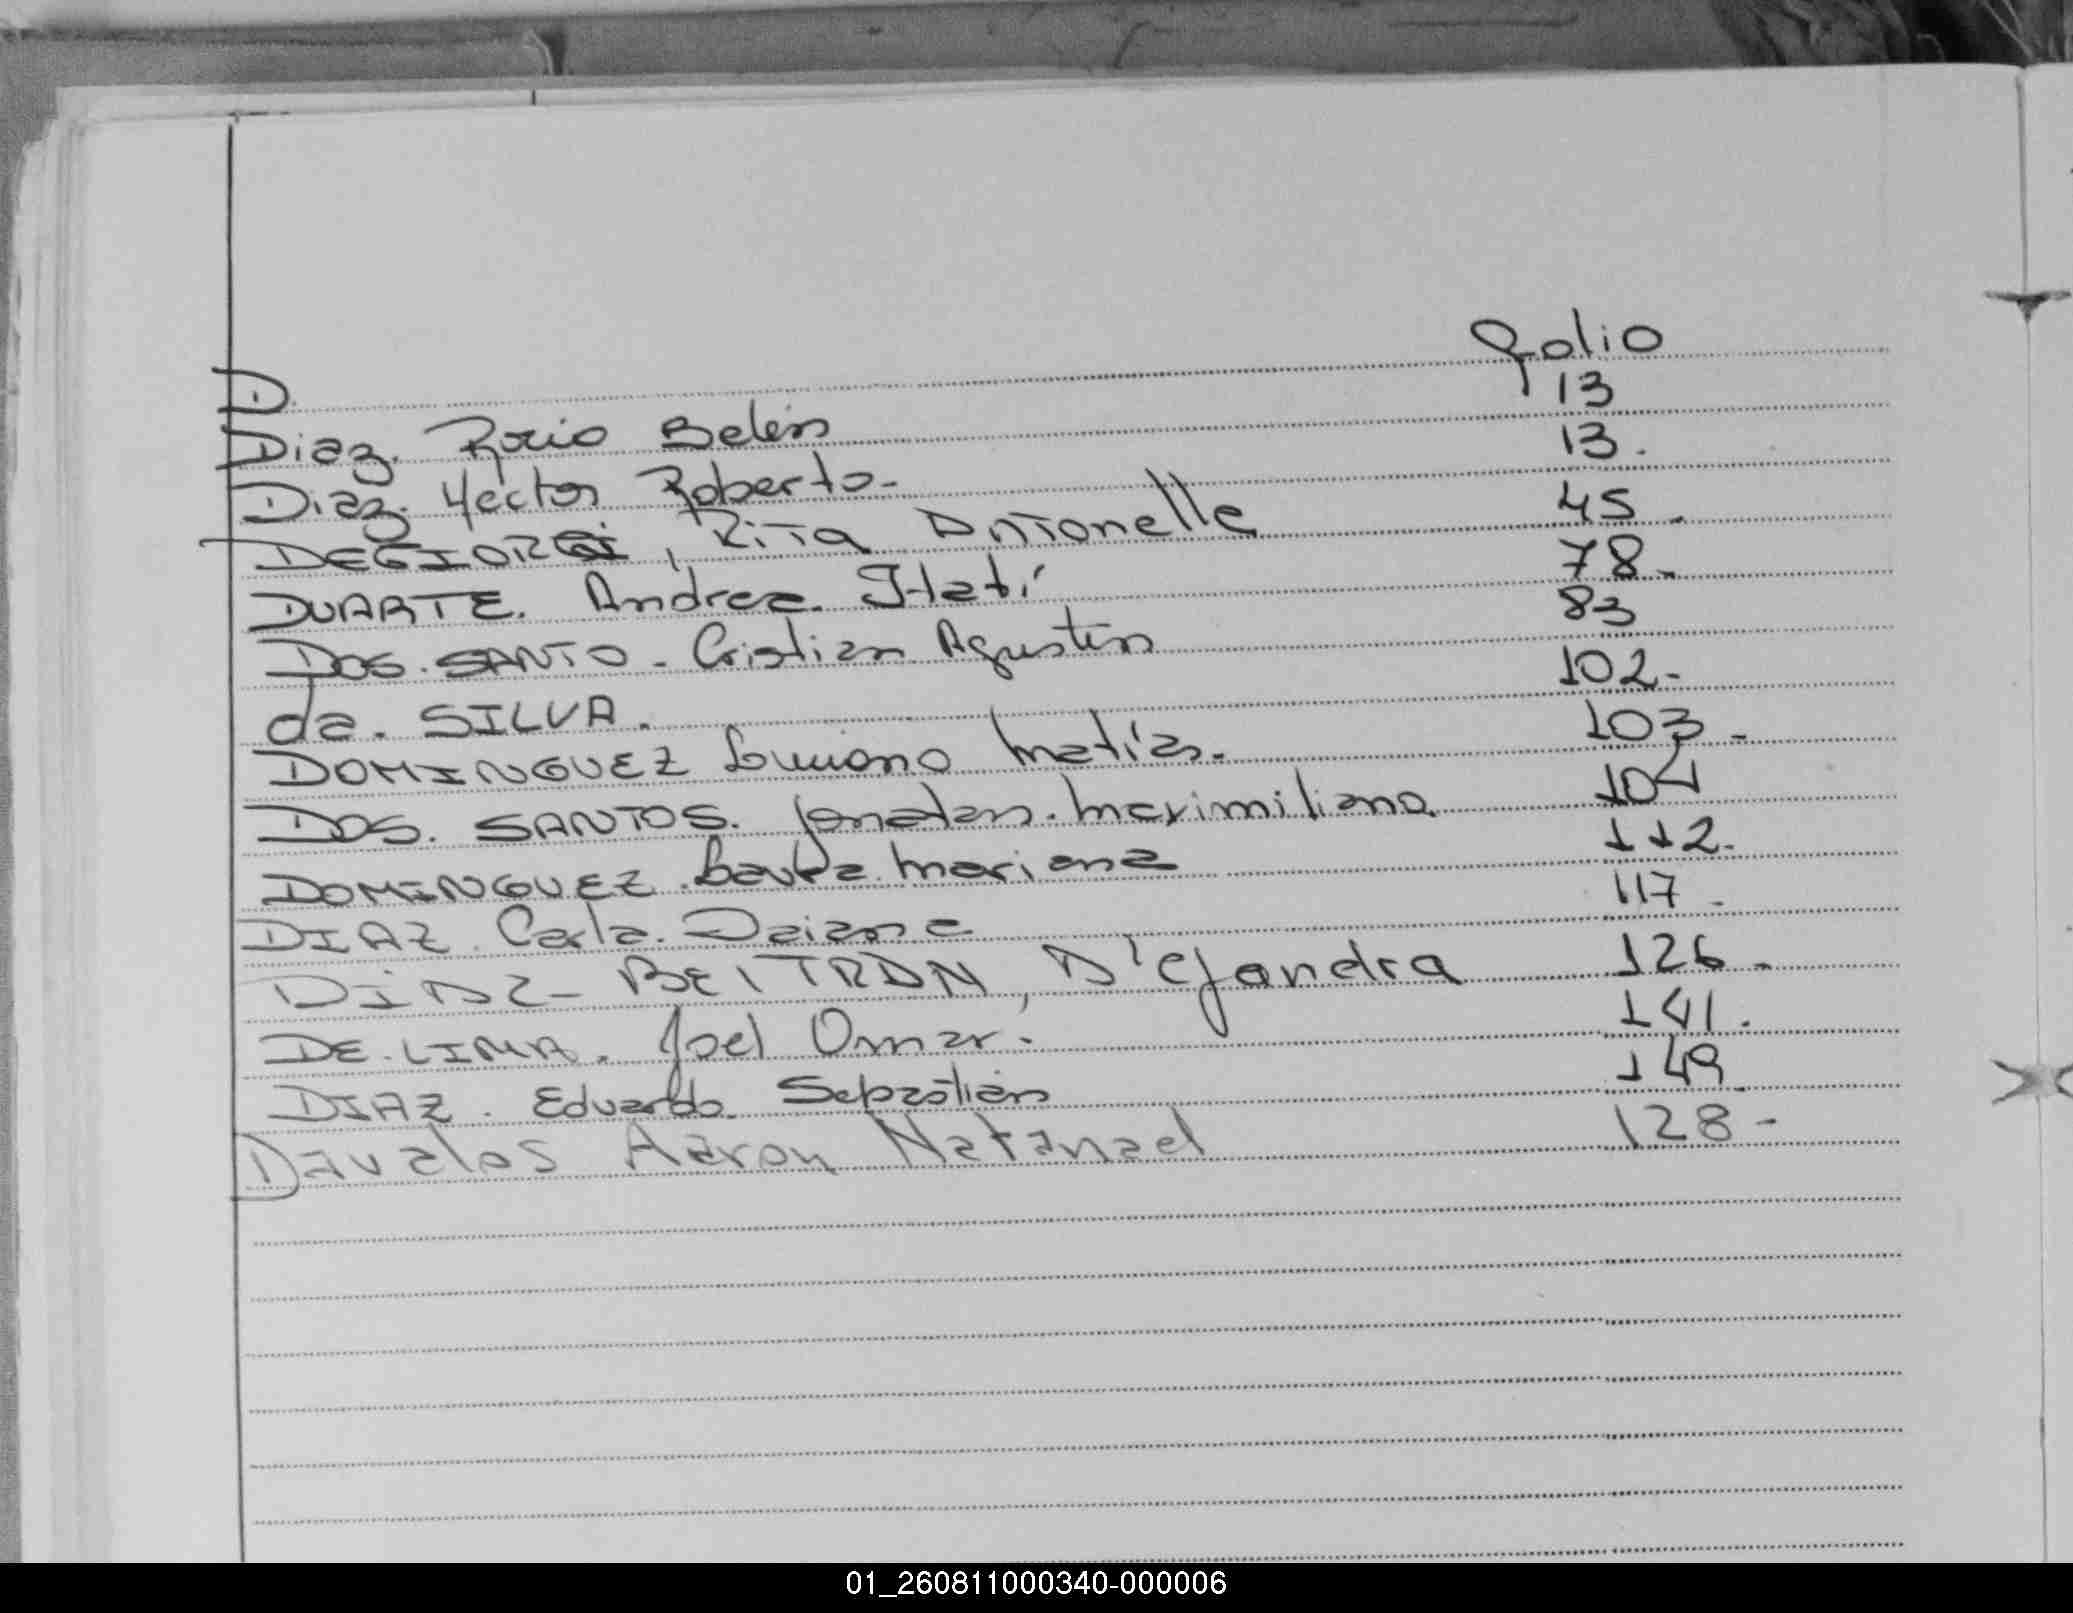 Folio
D.
Diaz. Rocio Belén 13
Diaz. Hector Roberto- 13.
DEGIORGI, RiTa ANTonella 45.
DUARTE. Andrea. Itatí 78-
DOS. SANTO- Cristian Agustín 83
da. SILVA. 102-
DOMINGUEZ Luciano Matías. 103-
DOS. SANTOS. Jonatan. Maximiliano 104
DOMINGUEZ. Laura. Mariana 112.
DIAZ. Carla. Daiana 117.
DiAZ- BELTRAN, AlEjandra 126-
DE. LIMA. Joel Omar. 141.
DIAZ. Eduardo. Sebastián 149.
Davalos Aaron Natanael 128-
01_260811000340-000006